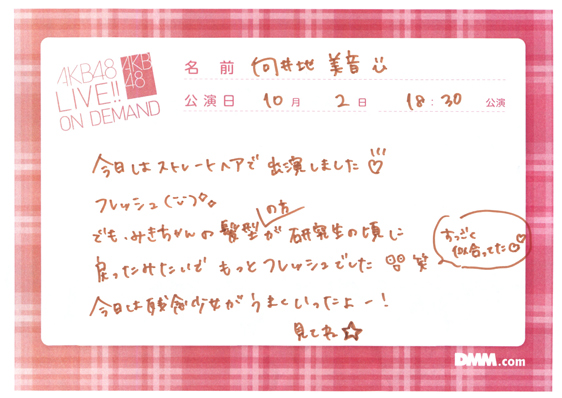 AKB48
LIVE!!
ON DEMAND
AKB
48
名前 向井地 美音
公演日 10月 2日 18:30 公演
今日はストレートヘアで 出演しました♡
フレッシュ(¨)
の方
でも、みきちゃんの 髪型が 研究生の頃に
戻ったみたいで もっとフレッシュでした 笑
すっごく
似合ってた♡♡
今日は残念少女が うまくいったよー!
見てね☆
DMM.com